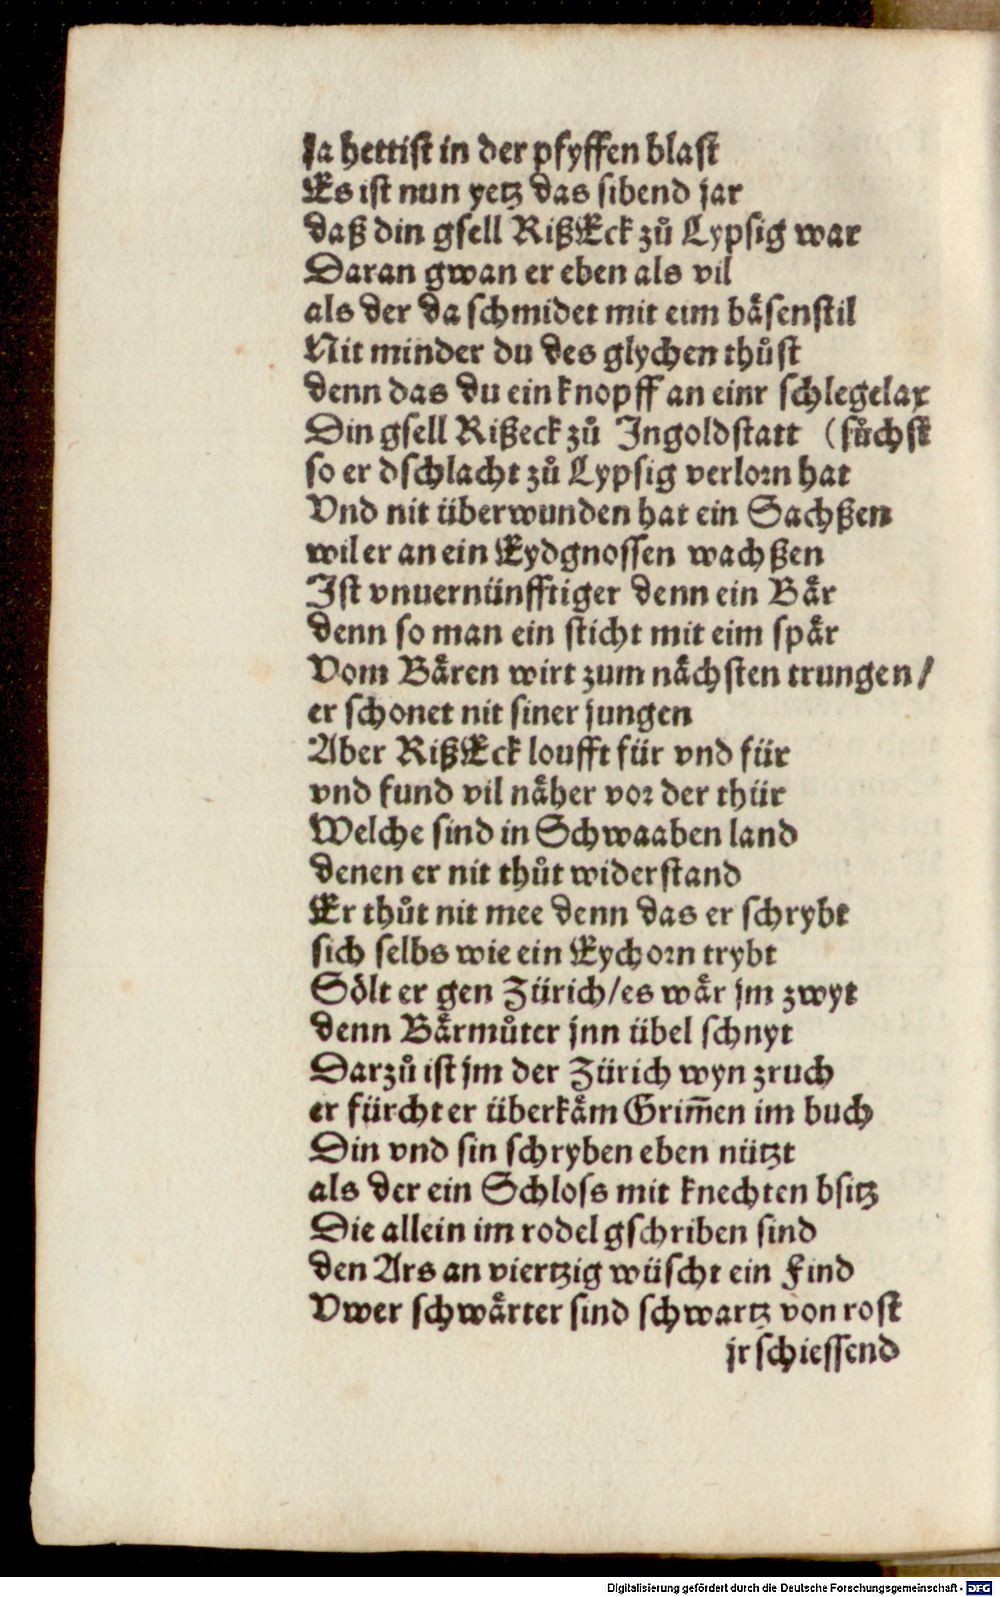 Ja hettist in der pfyffen blast
Es ist nun yetz das sibend jar
daß din gsell RißEck zů Lypsig war
Daran gwan er eben als vil
als der da schmidet mit eim båsenstil
Nit minder du des glychen thůst
denn das du ein knopff an einr schlegelax
Din gsell Rißeck zů Ingoldstatt (sůchst
so er dschlacht zů Lypsig verlorn hat
Vnd nit überwunden hat ein Sachßen
wil er an ein Eydgnossen wachßen
Ist vnuernünfftiger denn ein Bår
denn so man ein sticht mit eim spår
Vom Båren wirt zum nåchsten trungen/
er schonet nit siner jungen
Aber RißEck loufft für vnd für
vnd fund vil nåher vor der thür
Welche sind in Schwaaben land
denen er nit thůt widerstand
Er thůt nit mee denn das er schrybt
sich selbs wie ein Eychorn trybt
Sölt er gen Zürich/es wår jm zwyt
denn Bårmůter jnn übel schnyt
Darzů ist jm der Zürich wyn zruch
er fürcht er überkåm Grim̄en im buch
Din vnd sin schryben eben nützt
als der ein Schloss mit knechten bsitz
Die allein im rodel gschriben sind
den Ars an viertzig wüscht ein Find
Vwer schwårter sind schwartz von rost
jr schiessend
Digitalisierung gefördert durch die Deutsche Forschungsgemeinschaft - DFG